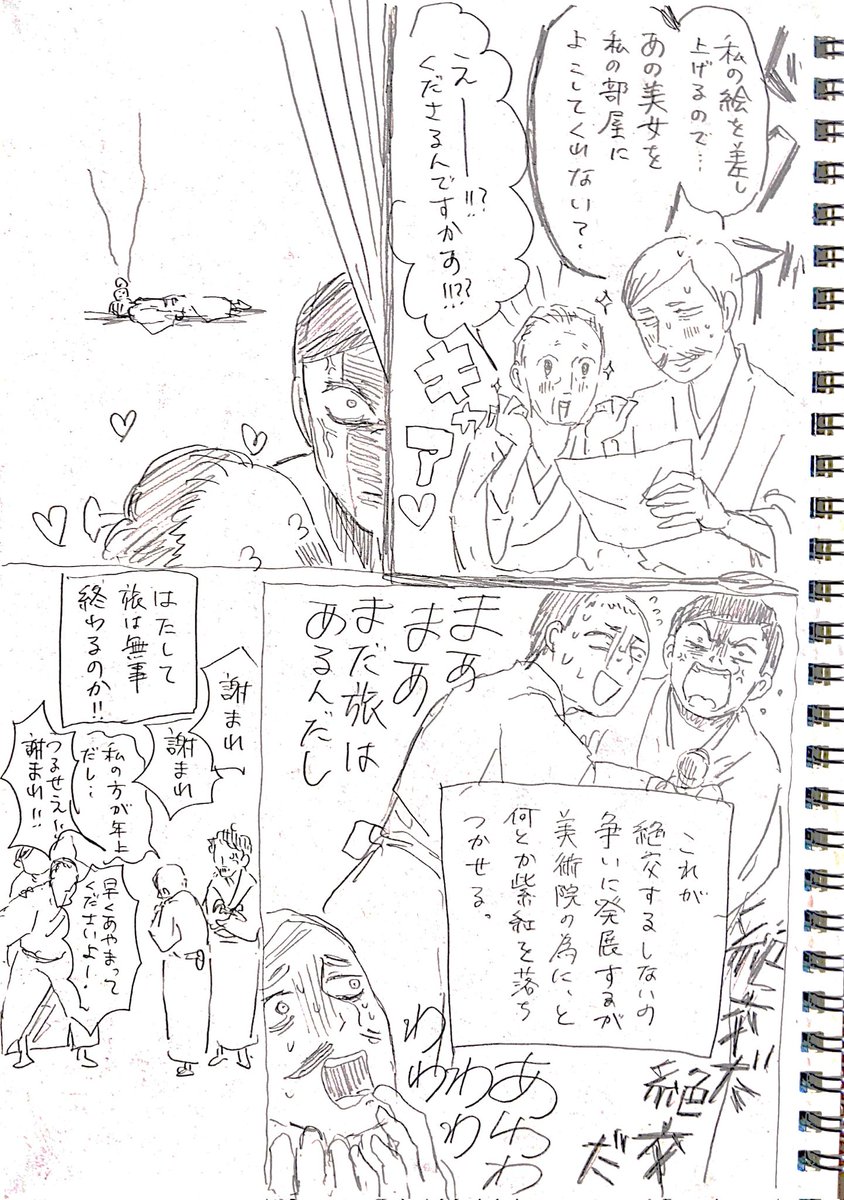 私の絵を差し
上げるので…
あの美女を
私の部屋に
よこしてくれない?
えーー!!?
くださるんですかあ!!??
キャ
ア♡
まぁ
まぁ
まだ旅は
あるんだし
これが
絶交するしないの
争いに発展するが
美術院の為に、と
何とか紫紅を落ち
つかせる。
絶交だ
絶交
だ
あわわ
わわ
わわ
わ
はたして
旅は無事
終わるのか!!
謝まれ
謝まれ
私の方が年上
だし…
うるせえ!!
謝まれ!!
早くあやまって
くださいよー!